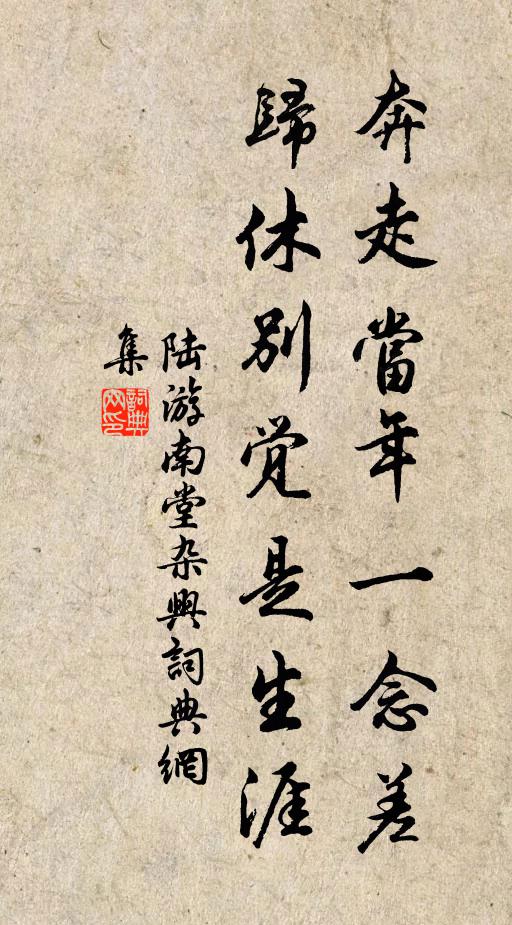 奔走當年一念差
歸休别觉是生涯
陆游南堂杂興詞典網
集
詞典网印